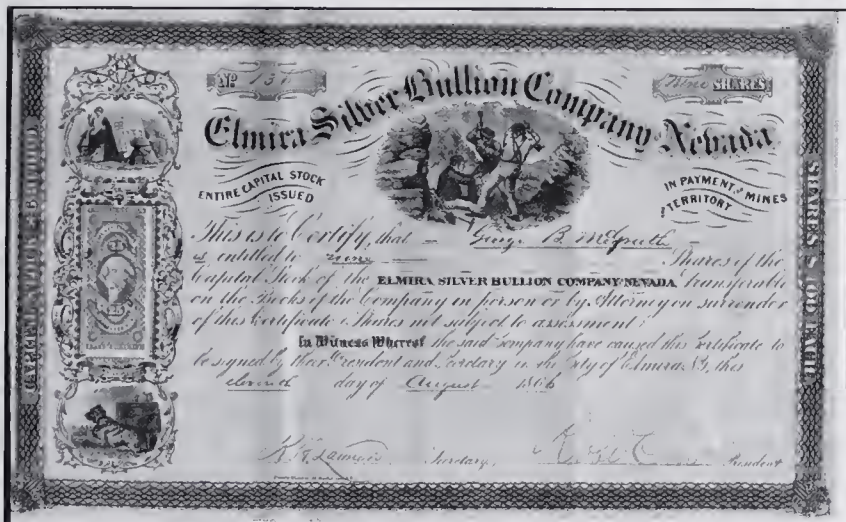 No 136
Nine SHARES
Elmira Silver Bullion Company Nevada
ENTIRE CAPITAL STOCK ISSUED
IN PAYMENT OF MINES & TERRITORY
This is to Certify, that George B. McGrath
is entitled to nine Shares of the
Capital Stock of the ELMIRA SILVER BULLION COMPANY NEVADA, transferable
on the Books of the Company in person or by Attorney on surrender
of this Certificate. Shares not subject to assessment.
In Witness Whereof the said Company have caused this Certificate to
be signed by their President and Secretary in the City of Elmira N.Y. this
eleventh day of August 1866
Secretary,
President
CAPITAL STOCK
SHARES
EACH
25